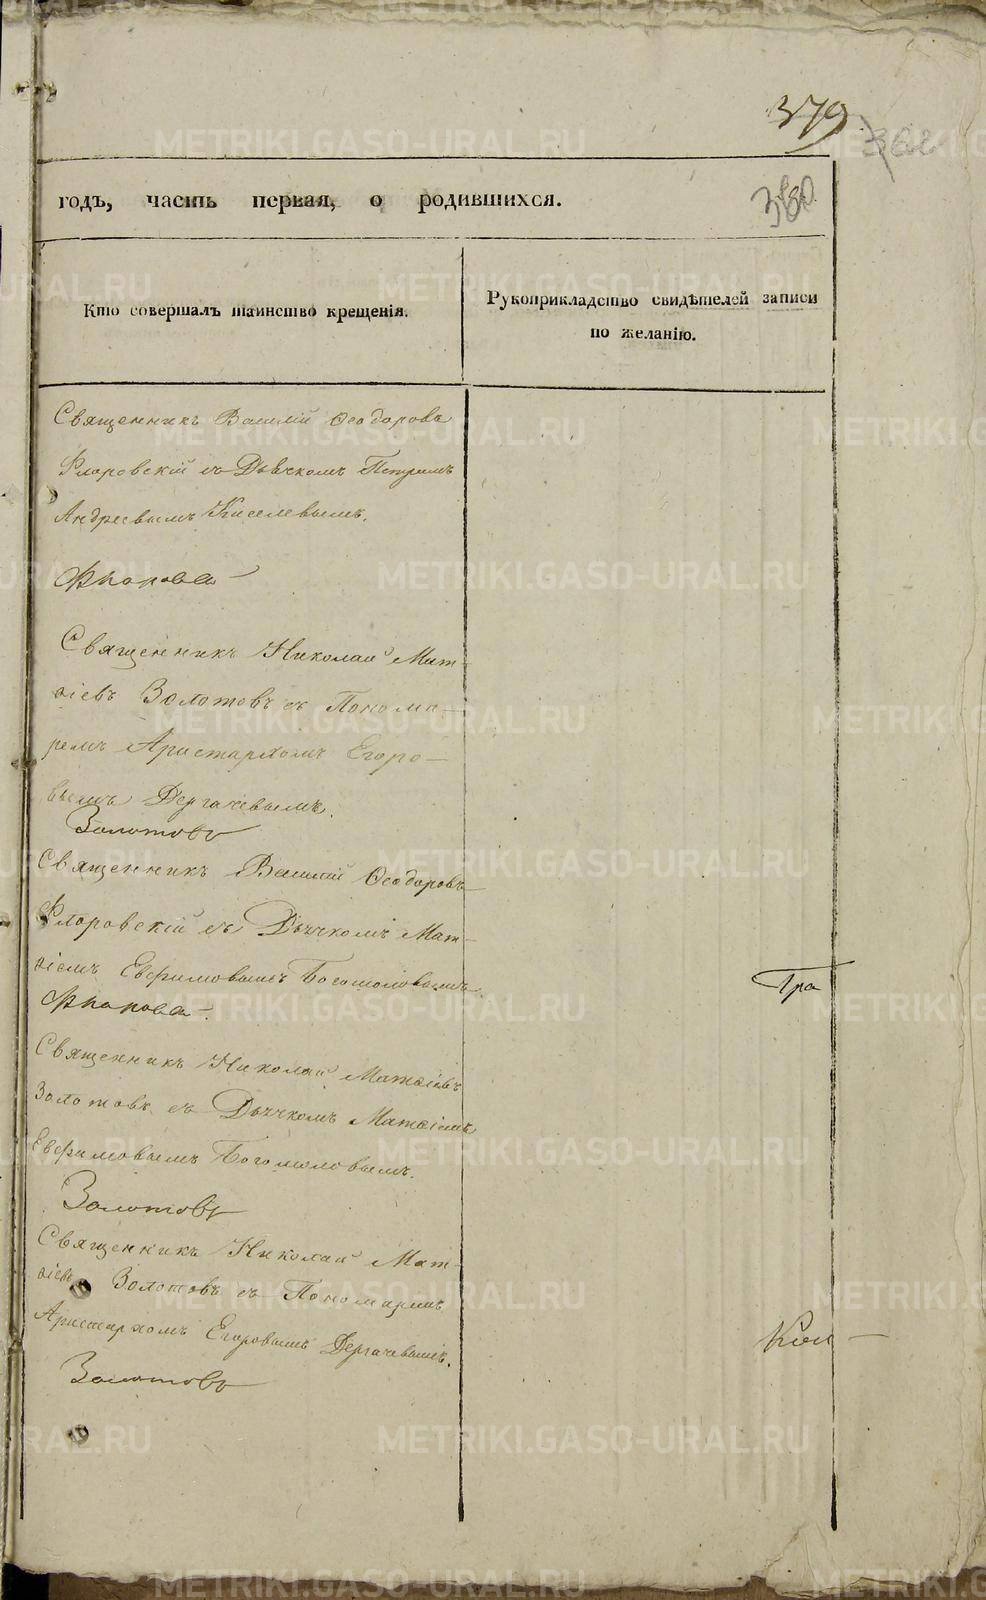 379
380
годъ, часть первая, о родившихся.
Кто совершалъ таинство крещенія.
Рукоприкладство свидѣтелей записи
по желанію.
Священникъ Василій Ѳеодоровъ
Флоровскій съ Дьячкомъ Петромъ
Андреевымъ Киселевымъ.
Священникъ Николай Мат-
ѳіевъ Золотовъ съ Понома-
ремъ Аристархомъ Егоро-
вымъ Дергачевымъ.
Золотовъ
Священникъ Василій Ѳеодоровъ
Флоровскій съ Дьячкомъ Мат-
ѳіемъ Евфимовымъ Богомоловымъ
Тра
Священникъ Николай Матѳіевъ
Золотовъ съ Дьячкомъ Матѳіемъ
Евфимовымъ Богомоловымъ.
Золотовъ
Священникъ Николай Мат-
ѳіевъ Золотовъ съ Пономаремъ
Аристархомъ Егоровымъ Дергачевымъ.
Золотовъ
METRIKI.GASO-URAL.RU